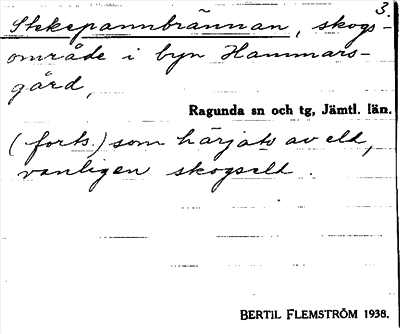 3.
Stekepannbrännan, skogs-
område i byn Hammars-
gård,
Ragunda sn och tg, Jämtl. län.
(forts.) som härjats av eld,
vanligen skogseld.
BERTIL FLEMSTRÖM 1938.